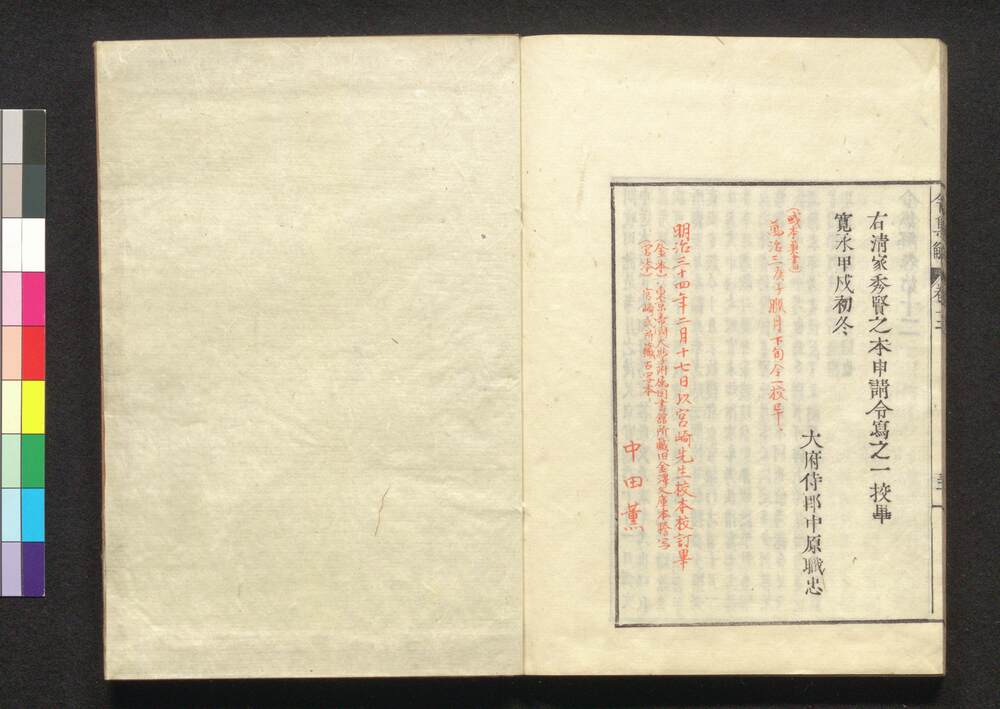 令集解 卷十三
右清家秀賢之本申請令寫之一挍畢
寛永甲戌初冬
大府侍郎中原職忠
(或本奥書)
萬治三庚子臘月下旬令一挍早、
明治三十四年二月十七日以宮崎先生校本校訂畢
(金本)、東京帝国大学附属図書館所蔵旧金澤文庫本謄写
(宮本)、宮崎氏所蔵古写本、
中田薫